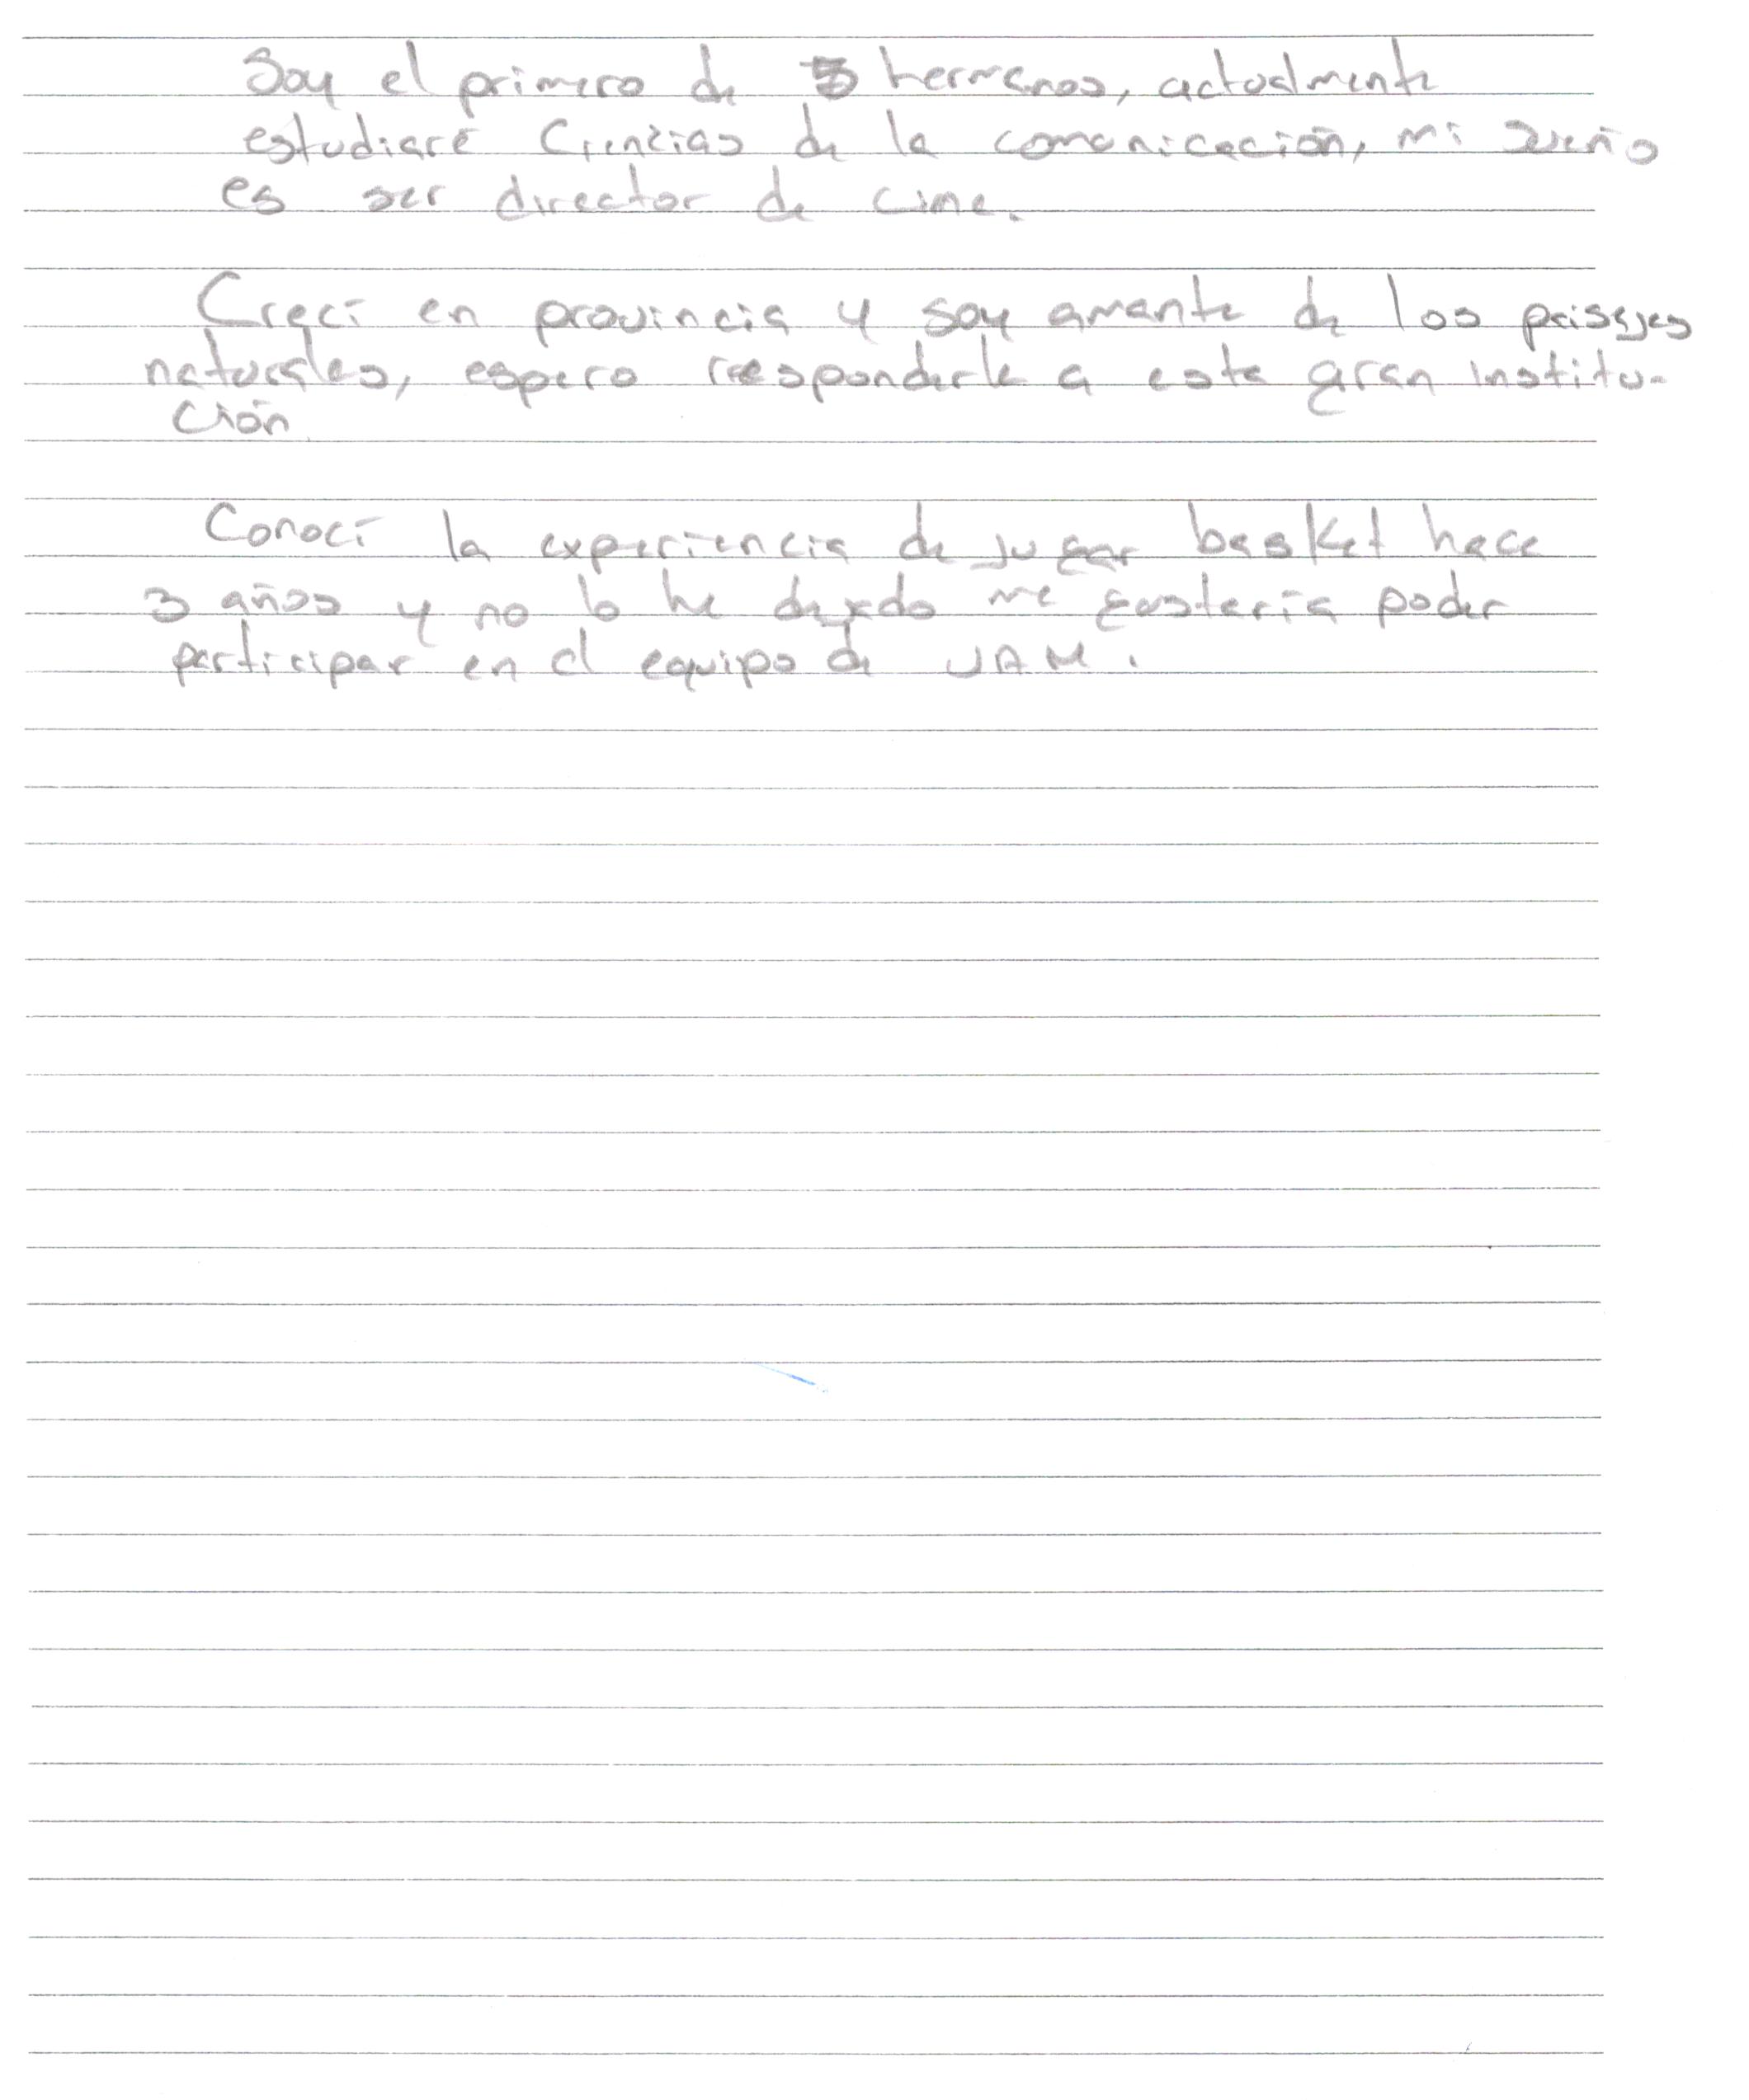 Soy el primero de 5 hermanos, actualmente
estudiaré Ciencias de la comunicación, mi sueño
es ser director de cine.
Crecí en provincia y soy amante de los paisajes
naturales, espero responderle a esta gran institu-
ción.
Conocí la experiencia de jugar basket hace
3 años y no lo he dejado me gustaría poder
participar en el equipo de UAM.